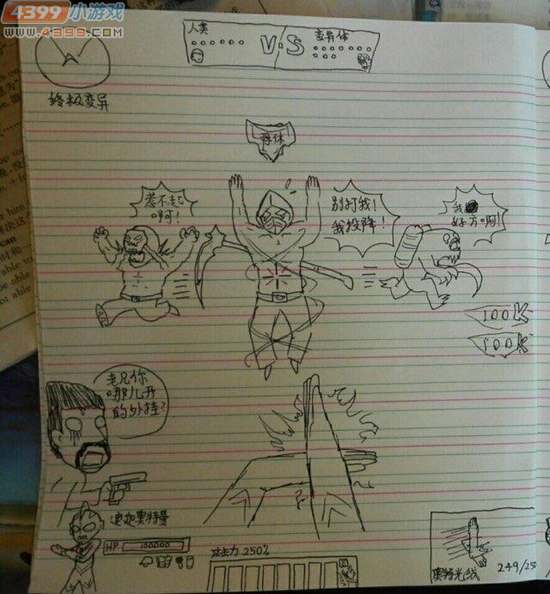 4399小游戏
www.4399.com
人类
VS
变异体
终极变异
母体
惹不起
啊!
别打我!
我投降!
我
好方啊!
100K
100K
老兄你
哪儿开
的外挂?
迪迦奥特曼
HP 100000
攻击力 250%
奥特光线
249/25